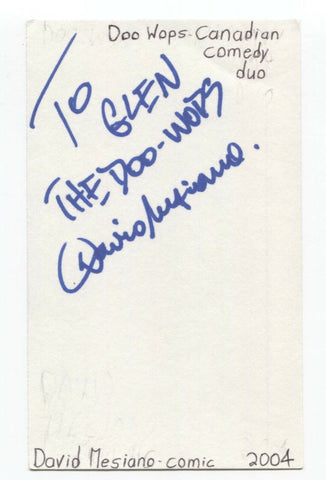 Doo Wops-Canadian
comedy
duo
TO GLEN
THE DOO-WOPS
David Mesiano.
David Mesiano-comic 2004